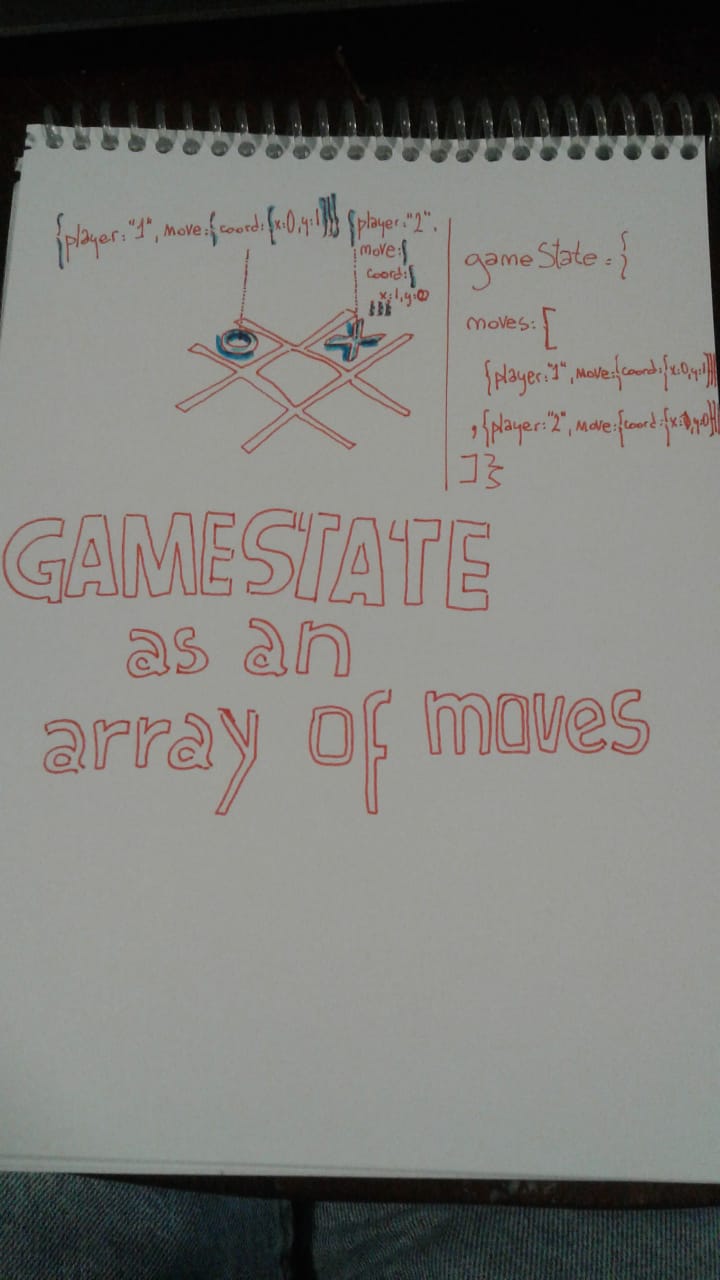 {player:"1", move:{coord:{x:0,y:1}}}
{player:"2",
move:{
coord:{
x:1,y:0
}}}
gameState = {
moves: [
{player:"1", move:{coord:{x:0,y:1}}}
,{player:"2", move:{coord:{x:1,y:0}}
]}
GAMESTATE
as an
array of moves